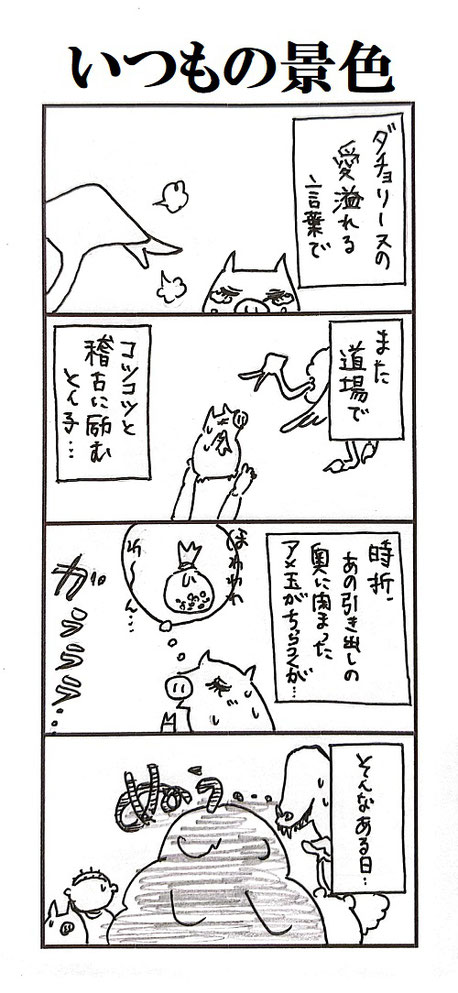 いつもの景色
ダチョリースの
愛溢れる
言葉で
また
道場で
コツコツと
稽古に励む
とん子…
時折、
あの引き出しの
奥に閉まった
アメ玉がちらつくが…
ほわわわ
わ〜ん…
ガラララ…
そんなある日…